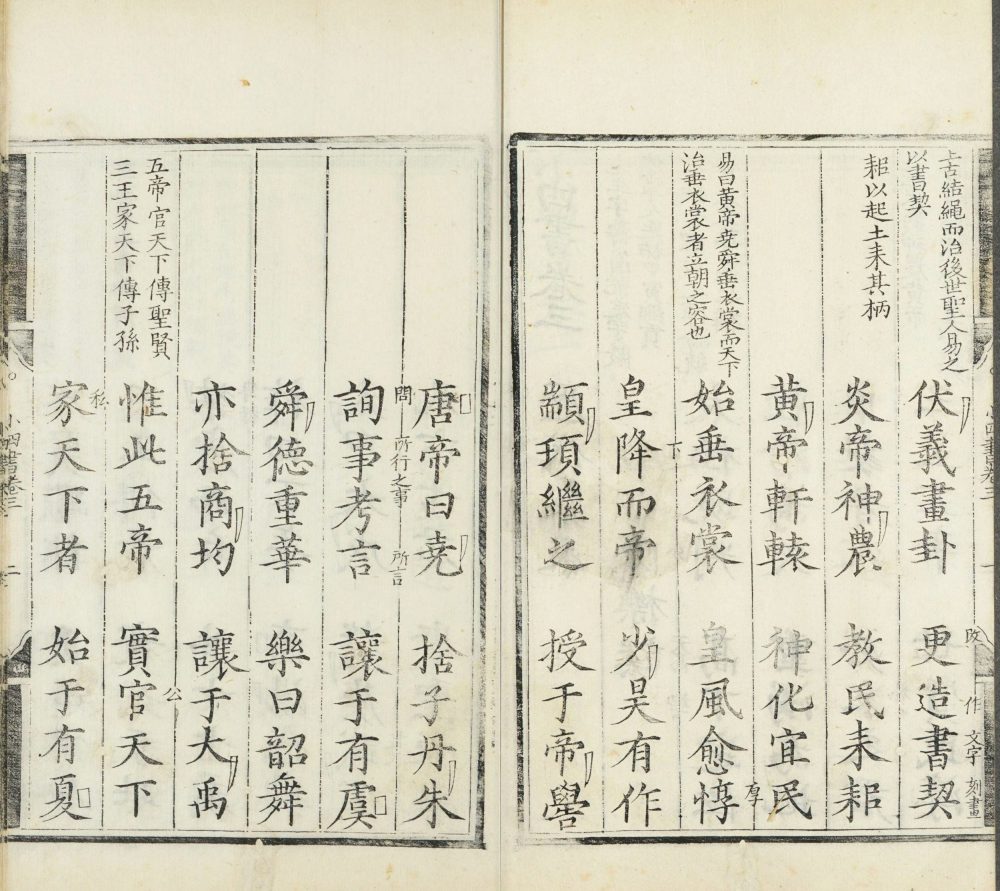 上古結繩而治後世聖人易之
以書契
伏羲畫卦 更造書契
改 作 文字 刻畫
耜以起土耒其柄
炎帝神農 教民耒耜
黃帝軒轅 神化宜民
易曰黃帝堯舜垂衣裳而天下
治垂衣裳者立朝之容也
始垂衣裳 皇風愈惇
下 厚
皇降而帝 少昊有作
顓頊繼之 授于帝嚳
唐帝曰堯 捨子丹朱
詢事考言 讓于有虞
問 所行之事 所言
舜德重華 樂曰韶舞
亦捨商均 讓于大禹
五帝官天下傳聖賢
三王家天下傳子孫
惟此五帝 實官天下
公
家天下者 始于有夏
私
小四書卷三 二